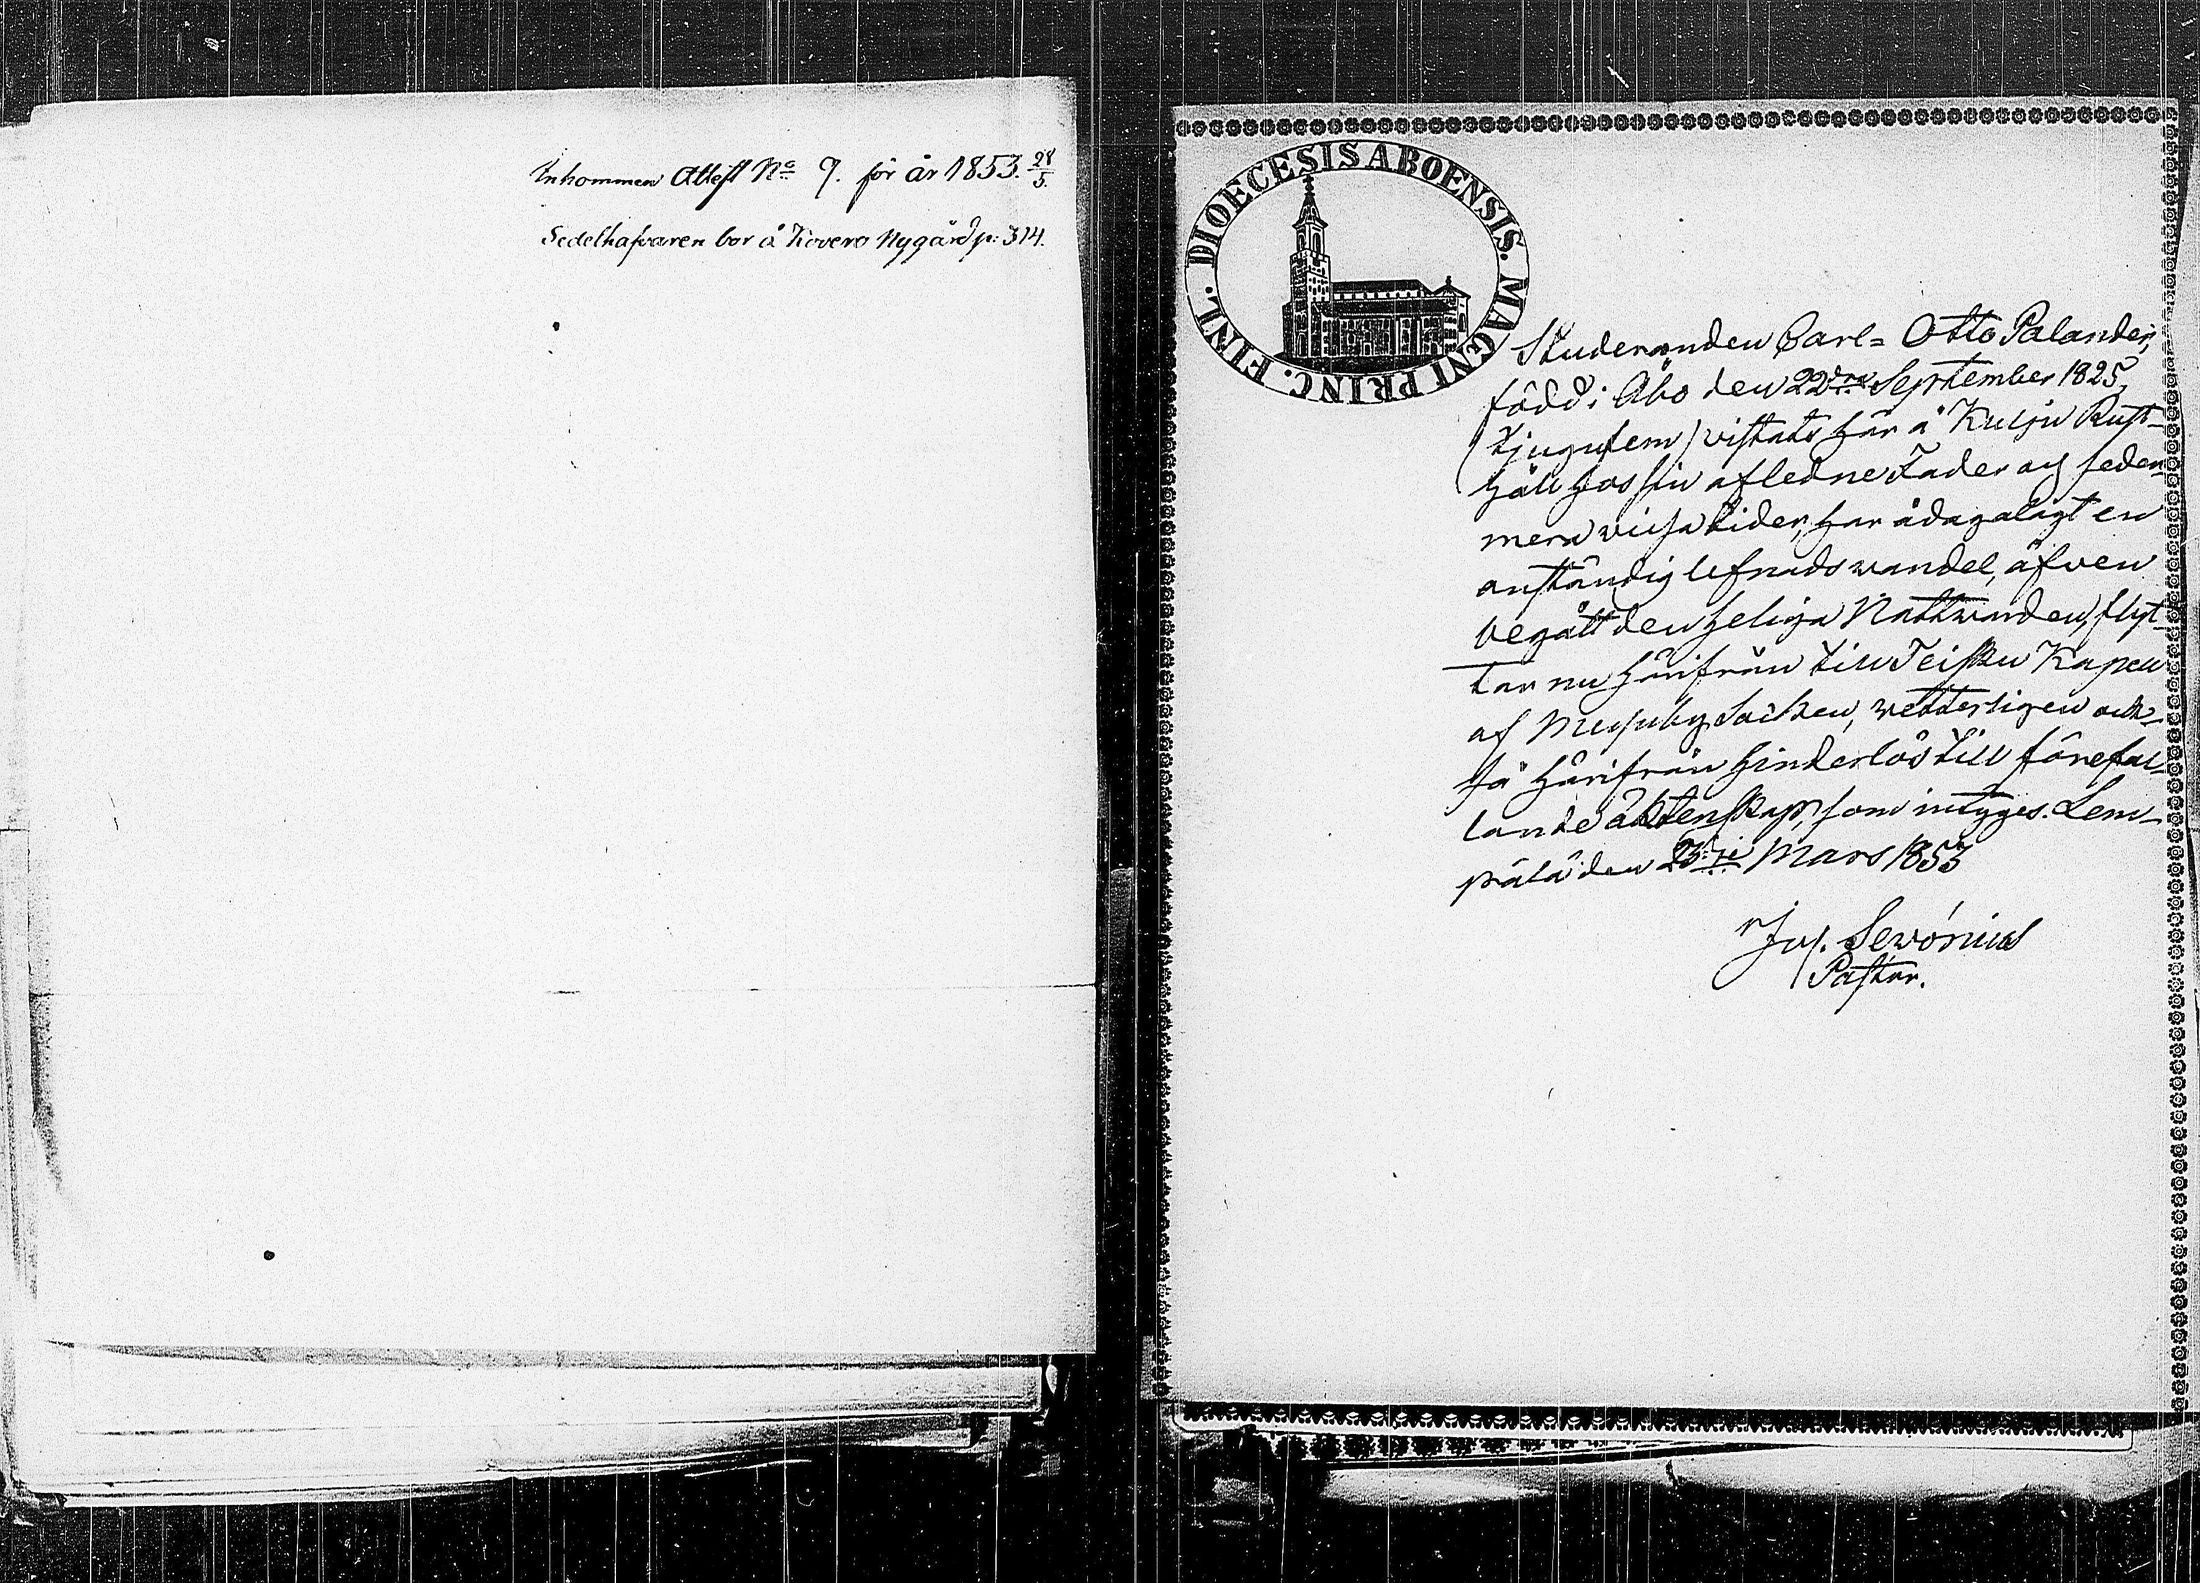 Inkommen Attest No 9. för år 1853. 28/5.
Sedelhafvaren bor å Kovero Nygård p: 314.
DIOECESIS ABOENSIS. MAGNI PRINC. FINL.
Studeranden Carl= Otto Palander,
född i Åbo den 22dra September 1825,
(tjugufem) vistats här å Kulju Rust-
håll hos sin aflidne Fader och seder-
mera vissa tider, har ådagalagt en
anständig lefnadswandel, äfven
begått den heliga Nattvarden, flyt-
tar nu härifrån till Teisko Kapell
af Messuby Socken, wetterligen ock-
så härifrån hinderlös till förefal-
lande äktenskap, som intygas. Lem-
pälä den 23dje Mars 1853
Jos. Sewónius
Pastor.